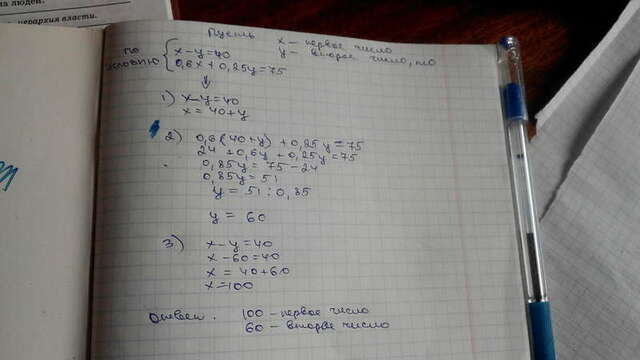 ла людей.
иерархия власти.
Пусть х – первое число
у – второе число, то
по условию
х–у=40
0,6х+0,25у=75
1) х–у=40
х = 40+у
2) 0,6(40+у) + 0,25у=75
24 +0,6у + 0,25у=75
0,85у = 75–24
0,85у = 51
у = 51:0,85
у = 60
3) х–у=40
х–60=40
х = 40+60
х=100
Ответ. 100 – первое число
60 – второе число